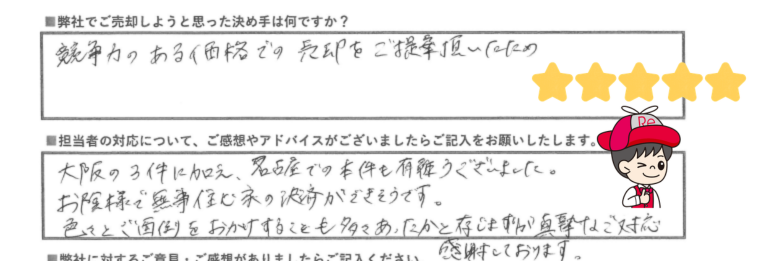 ■弊社でご売却しようと思った決め手は何ですか？
競争力のある価格での売却をご提案頂いたため
Re
■担当者の対応について、ご感想やアドバイスがございましたらご記入をお願いしたします。
大阪の3件に加え、名古屋での本件も有難うございました。
お陰様で無事住む家の決済ができそうです。
色々とご面倒をおかけすることも多々あったかと存じますが真摯なご対応
感謝しております。
■弊社に対するご意見・ご感想がありましたらご記入ください